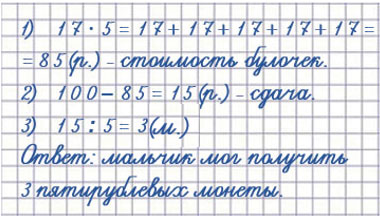 1) 17 · 5 = 17 + 17 + 17 + 17 + 17 =
= 85 (р.) – стоимость булочек.
2) 100 – 85 = 15 (р.) – сдача.
3) 15 : 5 = 3 (м.)
Ответ: мальчик мог получить
3 пятирублевых монеты.